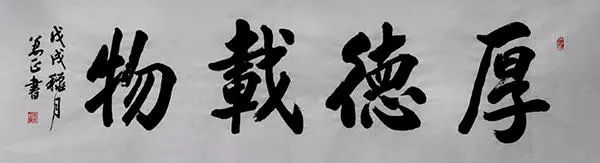 厚德載物
戊戌穐月
萬正書